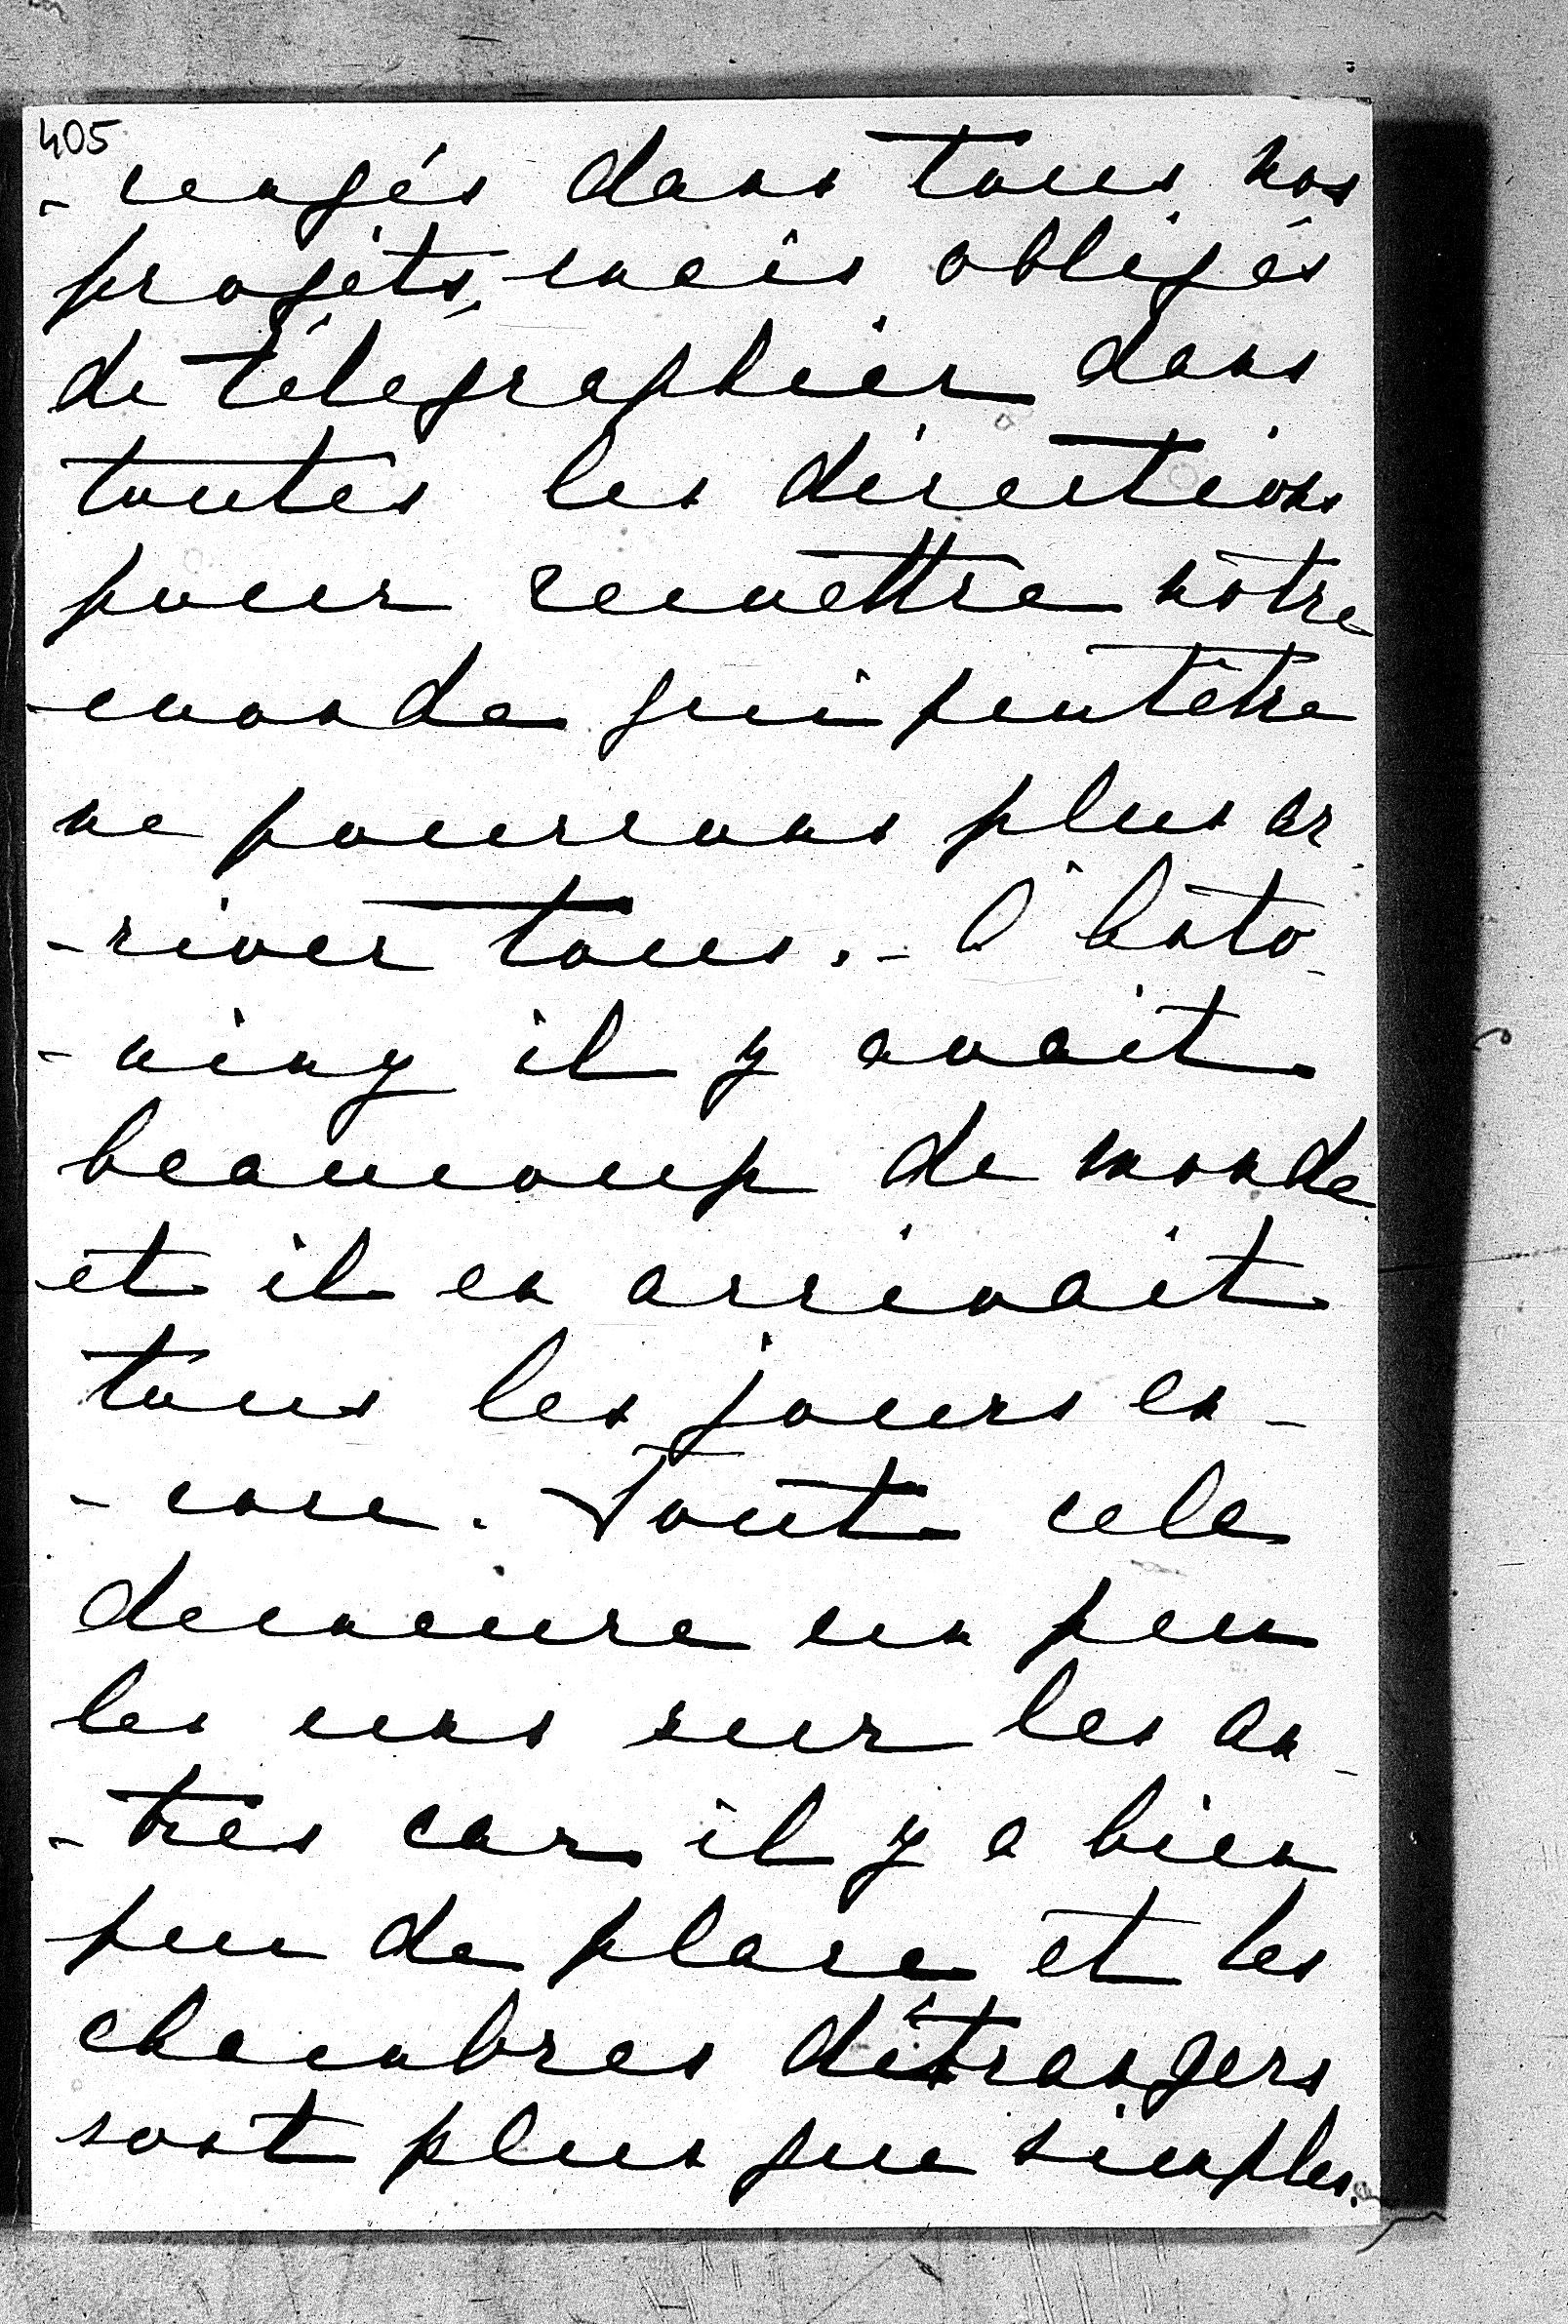 405
- rengés dans tous nos
projets, mais obligés
de télégraphier dans
toutes les directions
pour remettre nôtre
monde qui peutêtre
ne pourrons plus ar
- river tous. - A Hato
- niny il y avait
beaucoup de monde
et il en arrivait
tous les jours en -
- core. Tout cela
demeure un peu
les uns sur les au
- tres car il y a bien
peu de place et les
chambres d'étrangers
sont plus que simples.